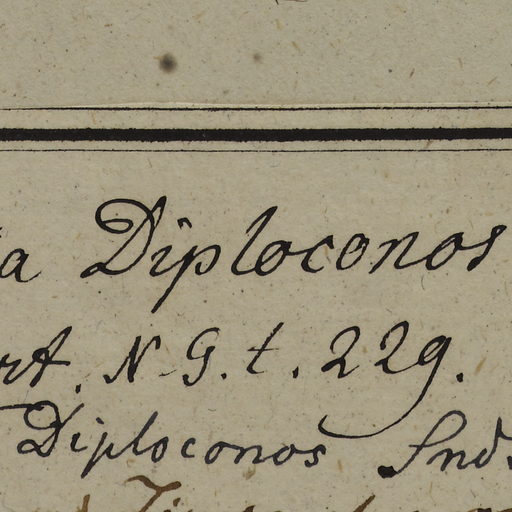 a Diploconos
rt. N. G. t. 229.
Diploconos Ind